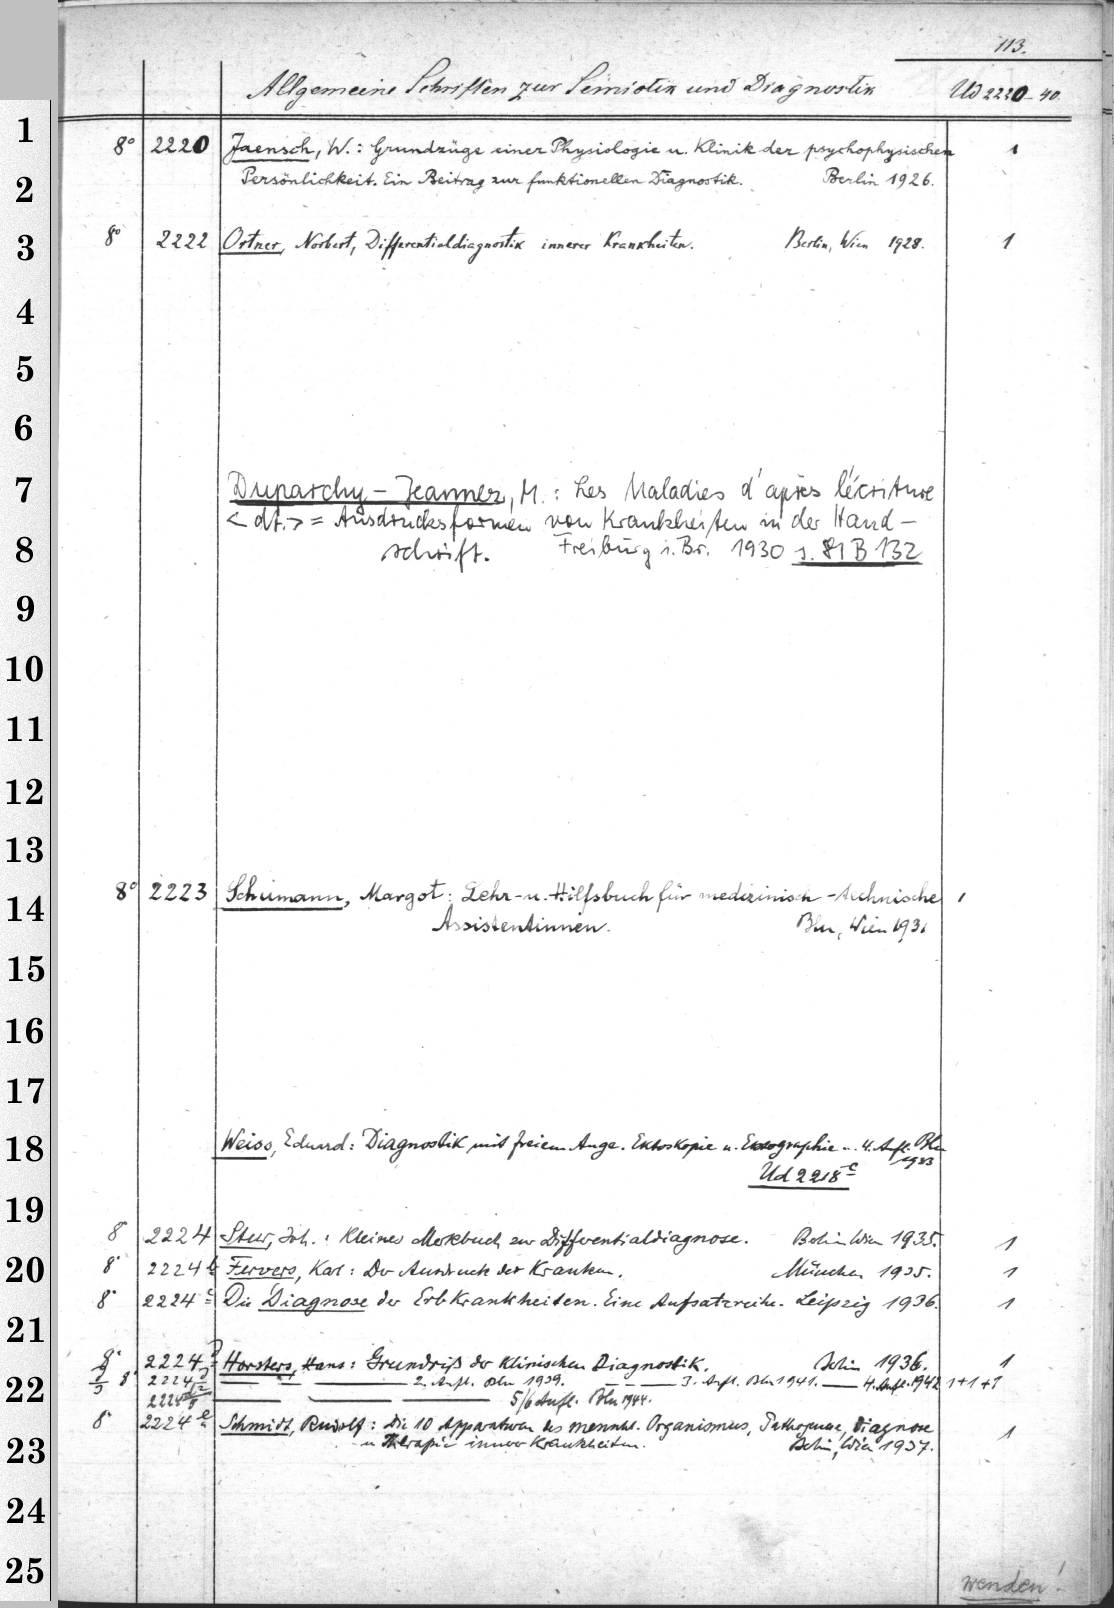 113.
Allgemeine Schriften zur Semiotik und Diagnostik Ud 2220-40.
1
8° 2220 Jaensch, W.: Grundzüge einer Physiologie u. Klinik der psychophysischen 1
2 Persönlichkeit. Ein Beitrag zur funktionellen Diagnostik. Berlin 1926.
3 8° 2222 Ortner, Norbert, Differentialdiagnostik innerer Krankheiten. Berlin, Wien 1928. 1
4
5
6
7 Duparchy-Jeannez, M.: Les Maladies d'après l'écriture
<dt.> = Ausdrucksformen von Krankheiten in der Hand-
8 schrift. Freiburg i. Br. 1930 s. 81 B 132
9
10
11
12
13
14 8° 2223 Schumann, Margot: Lehr- u. Hilfsbuch für medizinisch-technische 1
Assistentinnen. Bln, Wien 1931
15
16
17
18 Weiss, Eduard: Diagnostik mit freiem Auge. Ektoskopie u. Ektographie .. 4. Aufl. Bln
1933
Ud 2218 c
19
8° 2224 Stur, Joh.: Kleines Merkbuch zur Differentialdiagnose. Berlin Wien 1935. 1
20 8° 2224 b Fervers, Karl: Der Ausdruck des Kranken. München 1935. 1
8° 2224 c Die Diagnose der Erbkrankheiten. Eine Aufsatzreihe. Leipzig 1936. 1
21
8° 2224 d Horsters, Hans: Grundriß der klinischen Diagnostik. Berlin 1936. 1
22 8° 2224 — — 2. Aufl. Bln 1939. — — 3. Aufl. Bln 1941. — 4. Aufl. 1942 1+1+1
2224 — — — 5/6 Aufl. Bln 1944.
8° 2224 e Schmidt, Rudolf: Die 10 Apparaturen des menschl. Organismus, Pathogenese, Diagnose 1
23 u Therapie innerer Krankheiten. Berlin, Wien 1937.
24
25 wenden!